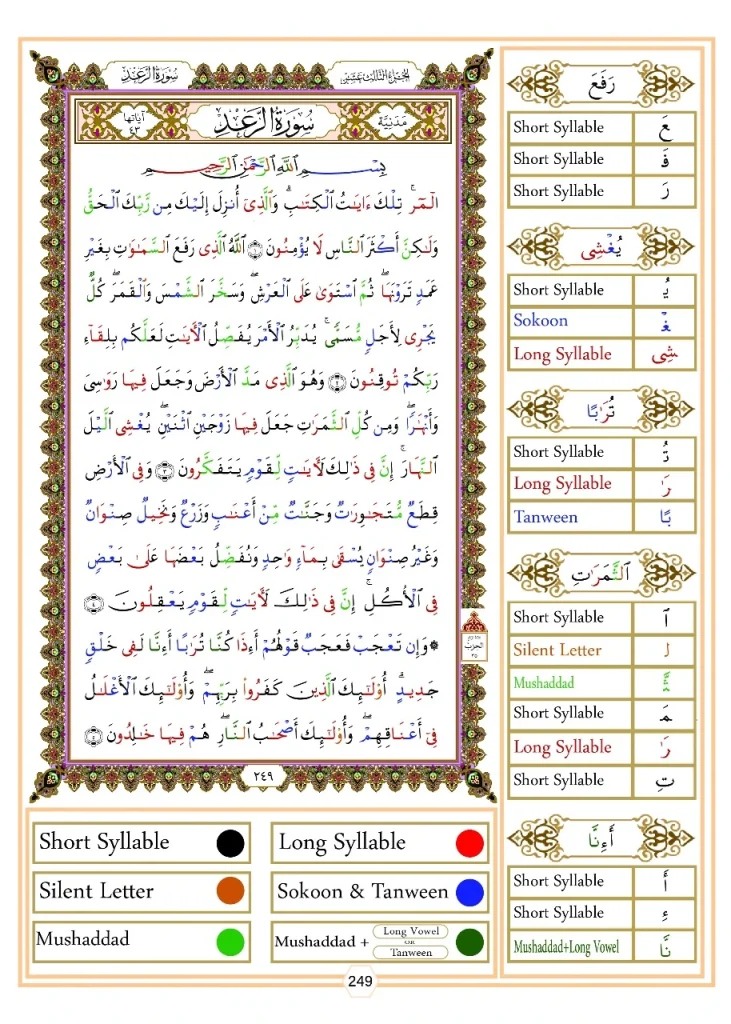 سُورَةُ الرَّعْدِ
الجُزْءُ الثَّالِثَ عَشَرَ
مَدَنِيَّة
سُورَةُ الرَّعْدِ
آيَاتُهَا ٤٣
بِسْمِ ٱللَّهِ ٱلرَّحْمَٰنِ ٱلرَّحِيمِ
الٓمٓر ۚ تِلْكَ ءَايَٰتُ ٱلْكِتَٰبِ ۗ وَٱلَّذِىٓ أُنزِلَ إِلَيْكَ مِن رَّبِّكَ ٱلْحَقُّ
وَلَٰكِنَّ أَكْثَرَ ٱلنَّاسِ لَا يُؤْمِنُونَ ١ ٱللَّهُ ٱلَّذِى رَفَعَ ٱلسَّمَٰوَٰتِ بِغَيْرِ
عَمَدٍ تَرَوْنَهَا ۖ ثُمَّ ٱسْتَوَىٰ عَلَى ٱلْعَرْشِ ۖ وَسَخَّرَ ٱلشَّمْسَ وَٱلْقَمَرَ ۖ كُلٌّ
يَجْرِى لِأَجَلٍ مُّسَمًّى ۚ يُدَبِّرُ ٱلْأَمْرَ يُفَصِّلُ ٱلْءَايَٰتِ لَعَلَّكُم بِلِقَآءِ
رَبِّكُمْ تُوقِنُونَ ٢ وَهُوَ ٱلَّذِى مَدَّ ٱلْأَرْضَ وَجَعَلَ فِيهَا رَوَٰسِىَ
وَأَنْهَٰرًا ۖ وَمِن كُلِّ ٱلثَّمَرَٰتِ جَعَلَ فِيهَا زَوْجَيْنِ ٱثْنَيْنِ ۖ يُغْشِى ٱلَّيْلَ
ٱلنَّهَارَ ۚ إِنَّ فِى ذَٰلِكَ لَءَايَٰتٍ لِّقَوْمٍ يَتَفَكَّرُونَ ٣ وَفِى ٱلْأَرْضِ
قِطَعٌ مُّتَجَٰوِرَٰتٌ وَجَنَّٰتٌ مِّنْ أَعْنَٰبٍ وَزَرْعٌ وَنَخِيلٌ صِنْوَانٌ
وَغَيْرُ صِنْوَانٍ يُسْقَىٰ بِمَآءٍ وَٰحِدٍ وَنُفَضِّلُ بَعْضَهَا عَلَىٰ بَعْضٍ
فِى ٱلْأُكُلِ ۚ إِنَّ فِى ذَٰلِكَ لَءَايَٰتٍ لِّقَوْمٍ يَعْقِلُونَ ٤
۞ وَإِن تَعْجَبْ فَعَجَبٌ قَوْلُهُمْ أَءِذَا كُنَّا تُرَٰبًا أَءِنَّا لَفِى خَلْقٍ
جَدِيدٍ ۗ أُو۟لَٰٓئِكَ ٱلَّذِينَ كَفَرُوا۟ بِرَبِّهِمْ ۖ وَأُو۟لَٰٓئِكَ ٱلْأَغْلَٰلُ
فِىٓ أَعْنَاقِهِمْ ۖ وَأُو۟لَٰٓئِكَ أَصْحَٰبُ ٱلنَّارِ ۖ هُمْ فِيهَا خَٰلِدُونَ
الحزب
٢٥
٢٤٩
رَفَعَ
Short Syllable عَ
Short Syllable فَـ
Short Syllable رَ
يُغْشِى
Short Syllable يُـ
Sokoon غْـ
Long Syllable شِى
تُرَٰبًا
Short Syllable تُـ
Long Syllable رَٰ
Tanween بًا
ٱلثَّمَرَٰتِ
Short Syllable ٱ
Silent Letter لـ
Mushaddad ثَّـ
Short Syllable مَـ
Long Syllable رَٰ
Short Syllable تِ
أَءِنَّا
Short Syllable أَ
Short Syllable ءِ
Mushaddad+Long Vowel نَّا
Short Syllable
Long Syllable
Silent Letter
Sokoon & Tanween
Mushaddad
Mushaddad + Long Vowel OR Tanween
249